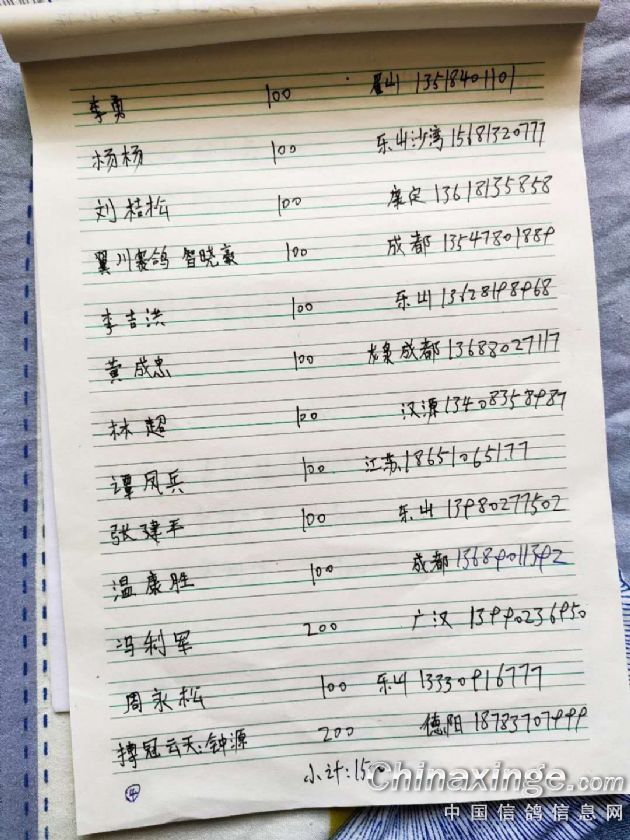 李勇 100 眉山 13518401101
杨杨 100 乐山沙湾 15681320777
刘桔松 100 康定 13618135858
翼川赛鸽 智晓豪 100 成都 13547801889
李吉洪 100 乐山 13628198968
黄成忠 100 龙泉成都 13688027117
林超 100 汉源 13408358987
谭凤兵 100 江苏 18651065177
张建平 100 乐山 13980277502
温康胜 100 成都 13689011392
冯利军 200 广汉 13990236950
周永松 100 乐山 13330916777
搏冠云天:钟源 200 德阳 18783707999
小计:1500
④
Chinaxinge.com
中国信鸽信息网